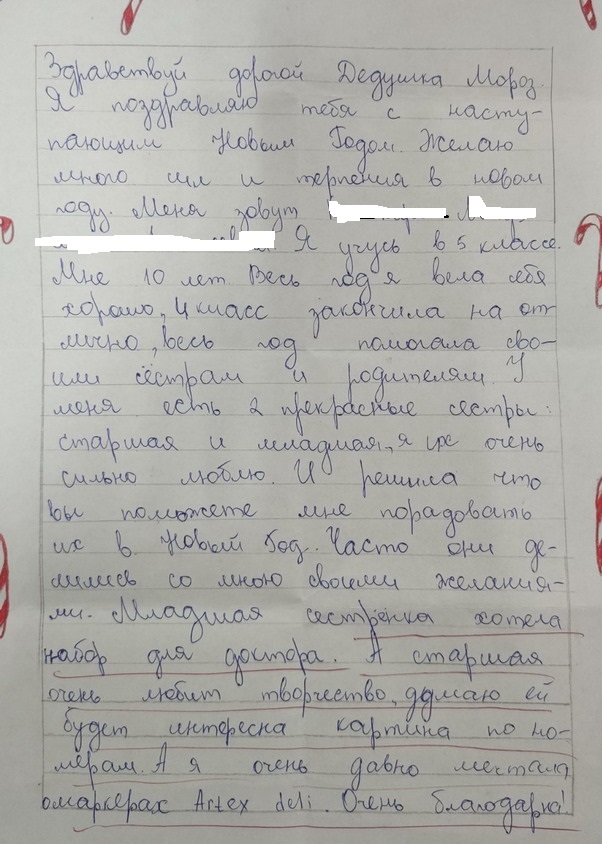 Здравствуй дорогой Дедушка Мороз.
Я поздравляю тебя с насту-
пающим Новым Годом. Желаю
много сил и терпения в новом
году. Меня зовут
Я учусь в 5 классе.
Мне 10 лет. Весь год я вела себя
хорошо, 4 класс закончила на от
лично, весь год помогала сво-
ими сёстрам и родителям. У
меня есть 2 прекрасные сестры:
старшая и младшая, я их очень
сильно люблю. И решила что
вы поможете мне порадовать
их в Новый Год. Часто они де-
лились со мною своими желания-
ми. Младшая сестрёнка хотела
набор для доктора. А старшая
очень любит творчество, думаю ей
будет интересна картина по но-
мерам. А я очень давно мечтала
омаркерах Artex deli. Очень благодарна!